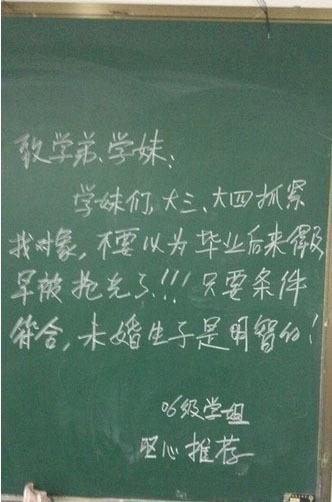 致学弟、学妹:
学妹们,大三、大四抓紧
找对象,不要以为毕业后来得及
早被抢光了!!!只要条件
符合,未婚生子是明智的!
06级学姐
呕心推荐